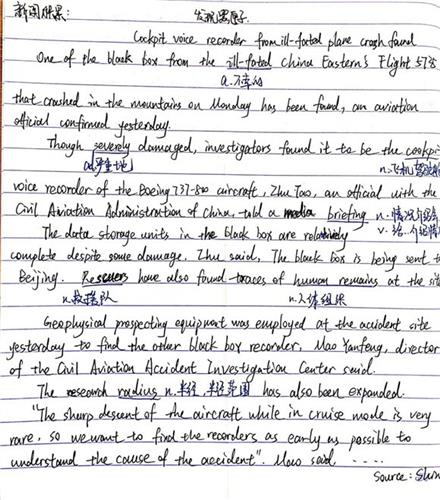 新闻 发现黑匣子
Cockpit voice recorder from ill-fated plane crash found
One of the black box from the ill-fated China Eastern's Flight
a.不幸的
that crashed in the mountains on Monday has been found, an aviation
official confirmed yesterday.
Though severely damaged, investigators found it to be the cockpi
ad.严重地 n.飞机驾驶
voice recorder of the Boeing 737-800 aircraft, Zhu Tao, an official with the
Civil Aviation Administration of China, told a media briefing n.情况介绍
The data storage units in the black box are relatively v.给
complete despite some damage, Zhu said, The black box is being sent t
Beijing. Rescuers have also found traces of human remains at the sit
n.救援队 n.人体组织
Geophysical prospecting equipment was employed at the accident site
yesterday to find the other black box recorder, Mao Yanfeng, director
of the Civil Aviation Accident Investigation Center said.
The research radius n.半径,半径范围 has also been expanded.
"The sharp descent of the aircraft while in cruise mode is very
rare, so we want to find the recorders as early as possible to
understand the cause of the accident". Mao said, .....
Source: Shin